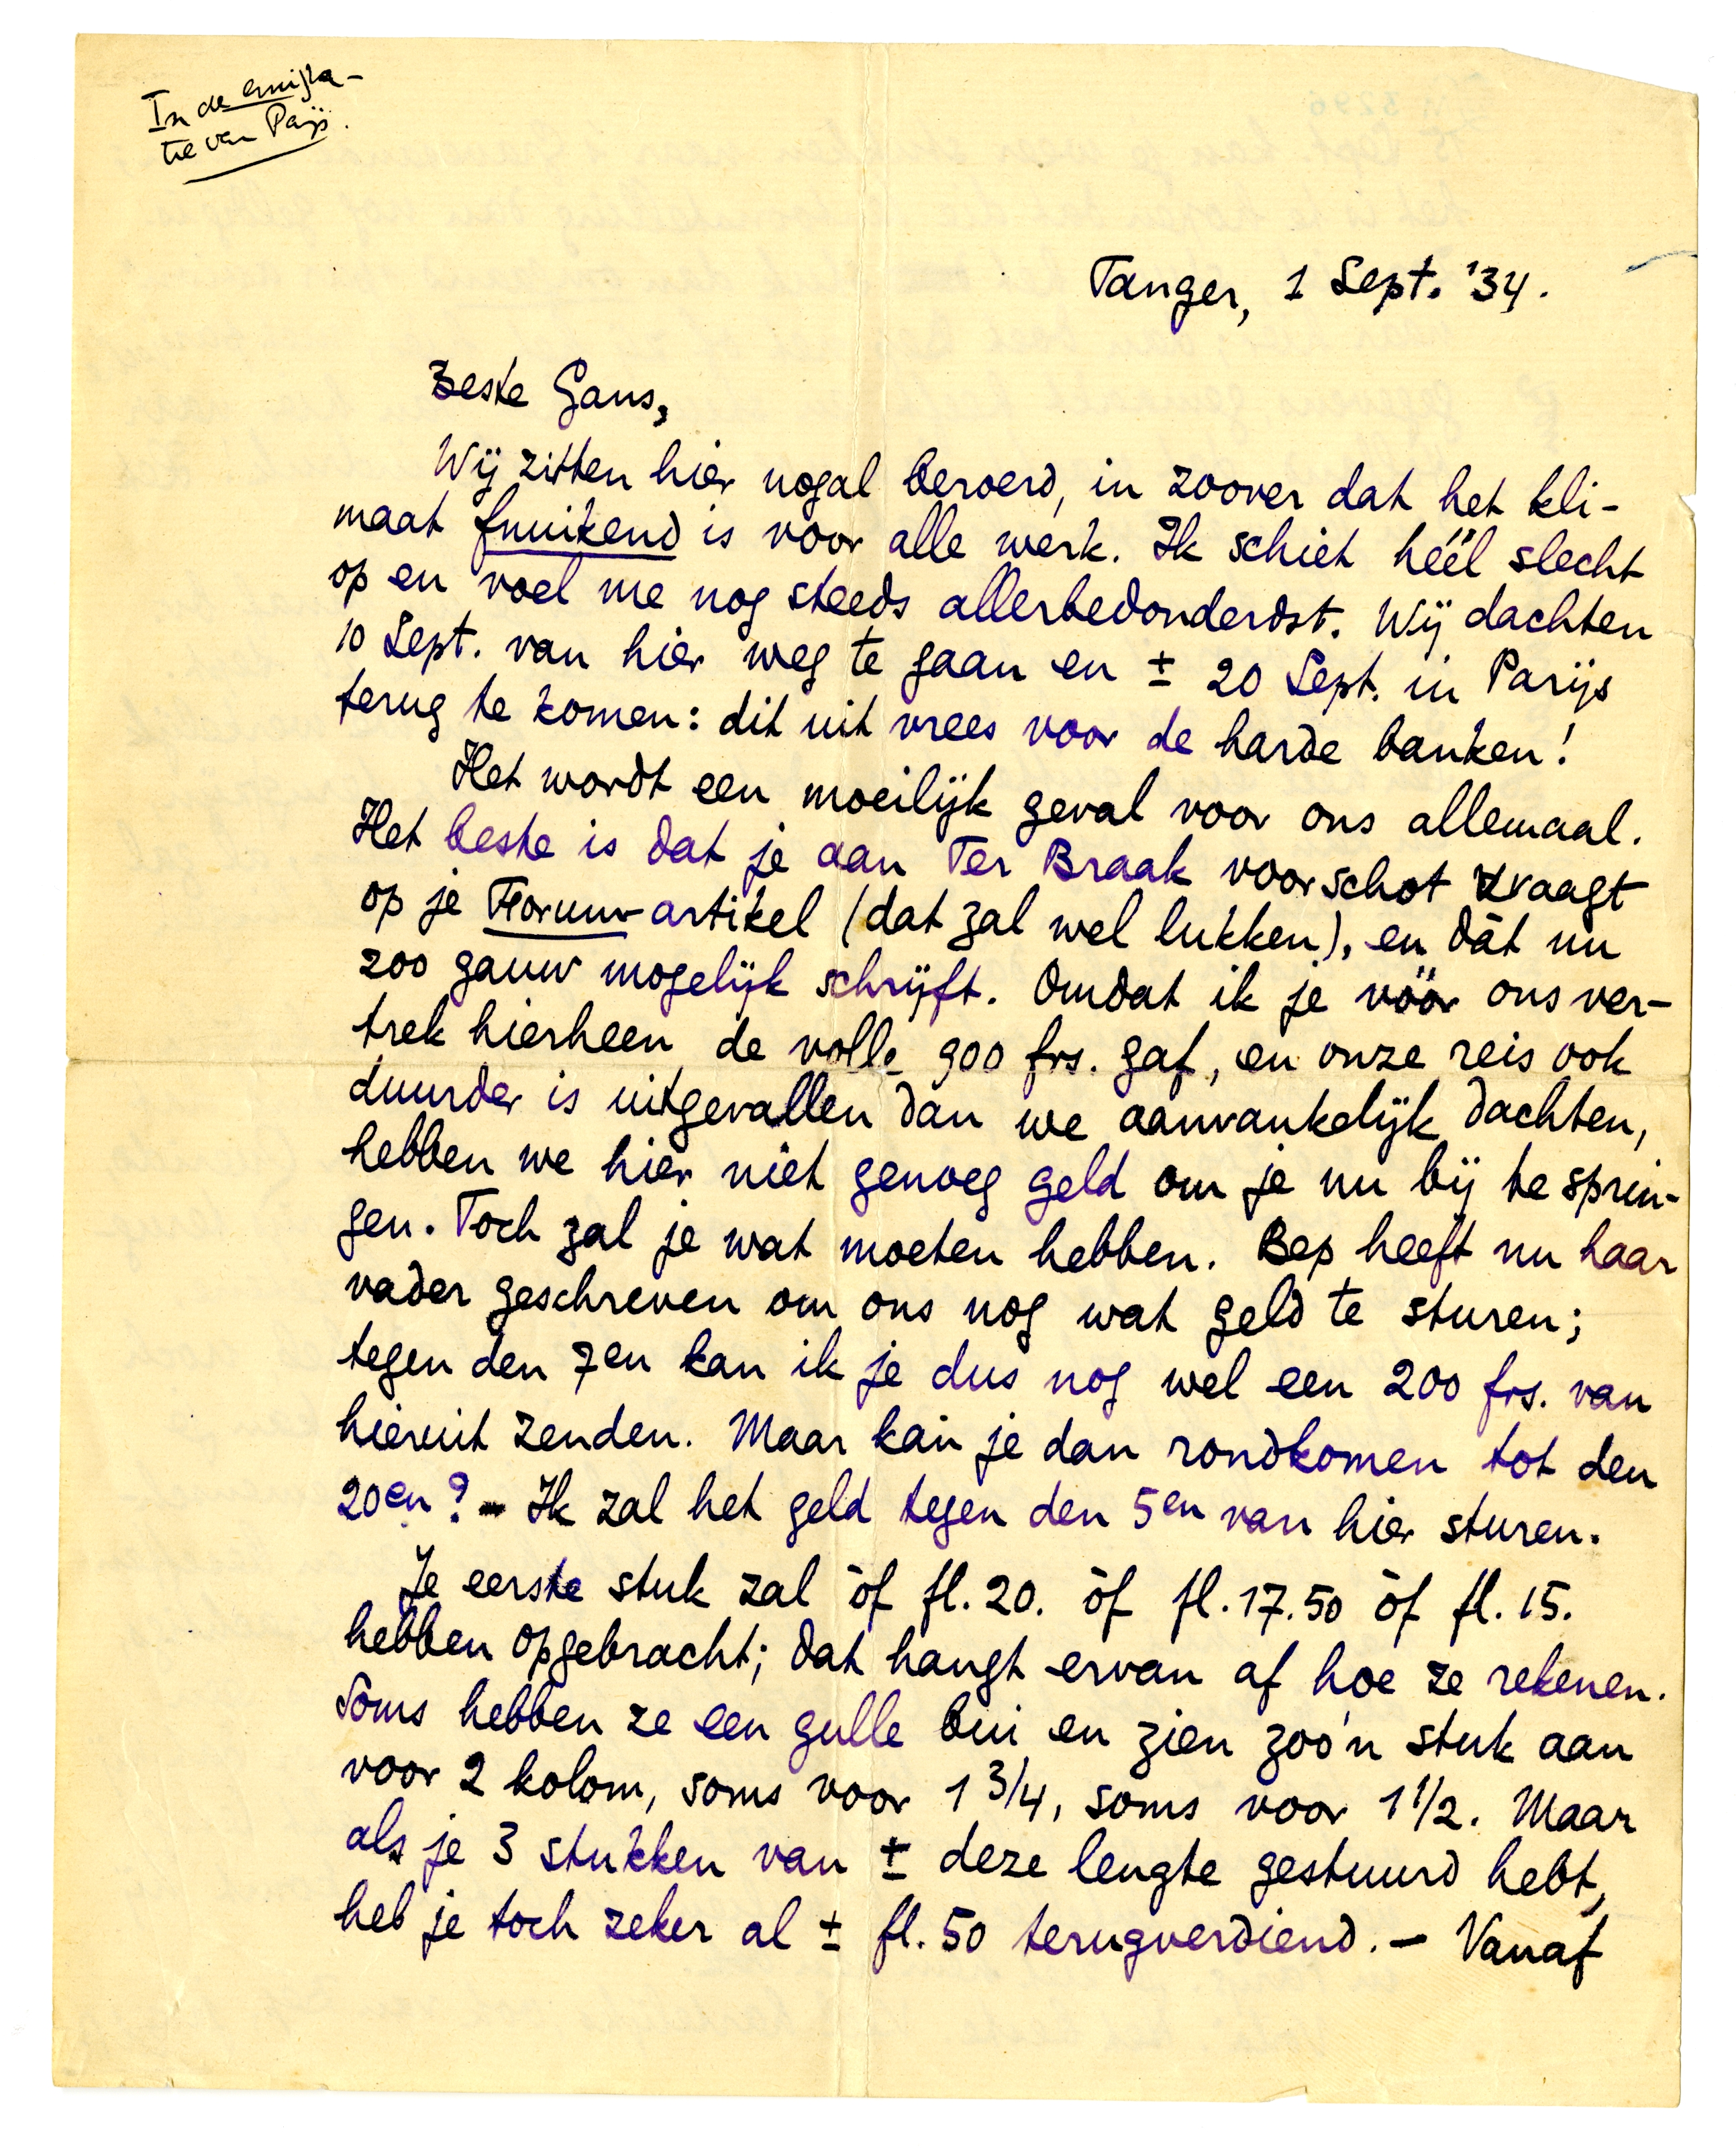 In de emigra-
tie van Parijs.
Tanger, 1 Sept. '34.
Beste Gans,
Wij zitten hier nogal beroerd, in zoover dat het kli-
maat fnuikend is voor alle werk. Ik schiet héél slecht
op en voel me nog steeds allerbedonderdst. Wij dachten
10 Sept. van hier weg te gaan en ± 20 Sept. in Parijs
terug te komen: dit uit vrees voor de harde banken!
Het wordt een moeilijk geval voor ons allemaal.
Het beste is dat je aan Ter Braak voorschot vraagt
op je Forum-artikel (dat zal wel lukken), en dàt nu
zoo gauw mogelijk schrijft. Omdat ik je vóór ons ver-
trek hierheen de volle 900 frs. gaf, en onze reis ook
duurder is uitgevallen dan we aanvankelijk dachten,
hebben we hier niet genoeg geld om je nu bij te sprin-
gen. Toch zal je wat moeten hebben. Bep heeft nu haar
vader geschreven om ons nog wat geld te sturen;
tegen den 7en kan ik je dus nog wel een 200 frs. van
hieruit zenden. Maar kan je dan rondkomen tot den
20en? - Ik zal het geld tegen den 5en van hier sturen.
Je eerste stuk zal òf fl. 20. òf fl. 17.50 òf fl. 15.
hebben opgebracht; dat hangt ervan af hoe ze rekenen.
Soms hebben ze een gulle bui en zien zoo'n stuk aan
voor 2 kolom, soms voor 1 3/4, soms voor 1 1/2. Maar
als je 3 stukken van ± deze lengte gestuurd hebt,
heb je toch zeker al ± fl. 50 terugverdiend. — Vanaf